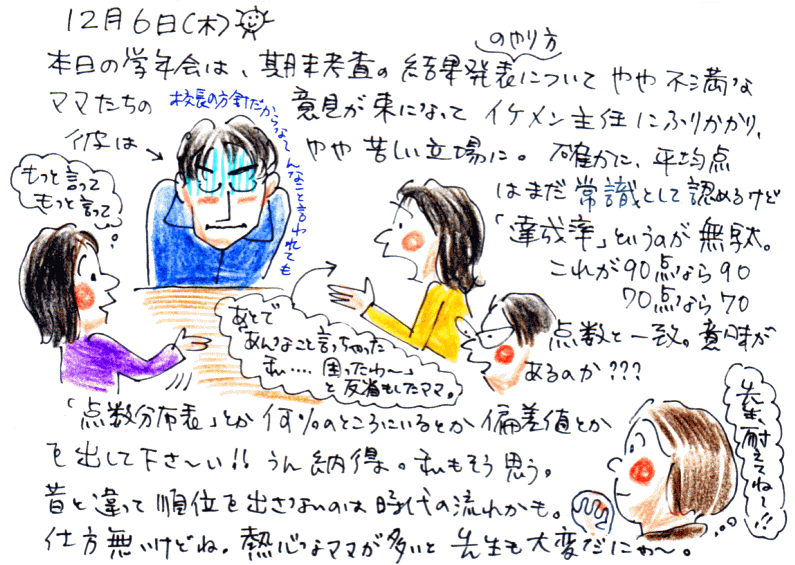 12月6日(木)
のやり方
本日の学年会は、期末考査の結果発表についてやや不満な
ママたちの
意見が束になってイケメン主任にふりかかり、
校長の方針だからな〜んなこと言われても
彼は→
やや苦しい立場に。確かに、平均点
はまだ常識として認めるけど
「達成率」というのが無駄。
これが90点なら90
70点なら70
点数と一致。意味が
あるのか???
もっと言って
もっと言って
あとで
あんなこと言っちゃった
私…. 困ったわ〜」
と反省もしたママ。
「点数分布表」とか何%のところにいるとか偏差値とか
を出して下さ〜い!!うん納得。私もそう思う。
昔と違って順位を出さないのは時代の流れかも。
仕方無いけどね。熱心なママが多いと先生も大変だにゃ〜。
先生、耐えてね〜!!